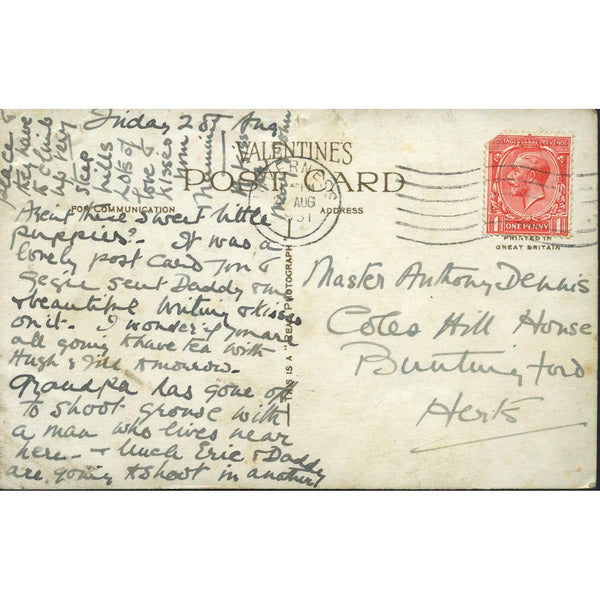 Friday 28th Aug
VALENTINE'S
POST CARD
FOR COMMUNICATION
ADDRESS
AUG
31
POSTAGE REVENUE
ONE PENNY
PRINTED IN
GREAT BRITAIN
THIS IS A "REAL" PHOTOGRAPH
Arent these sweet little
puppies? It was a
lovely post card you &
sent Daddy &
beautiful writing & kisses
on it. I wonder if you are
all going to have tea with
Hugh & Jill tomorrow.
Grandpa has gone off
to shoot grouse with
a man who lives near
here - & Uncle Eric & Daddy
are going to shoot in another
place &
they have
to climb
up very
steep
hills
Lots of
love &
kisses
from
Mummie
Master Anthony Dennis
Coles Hill House
Buntingford
Herts